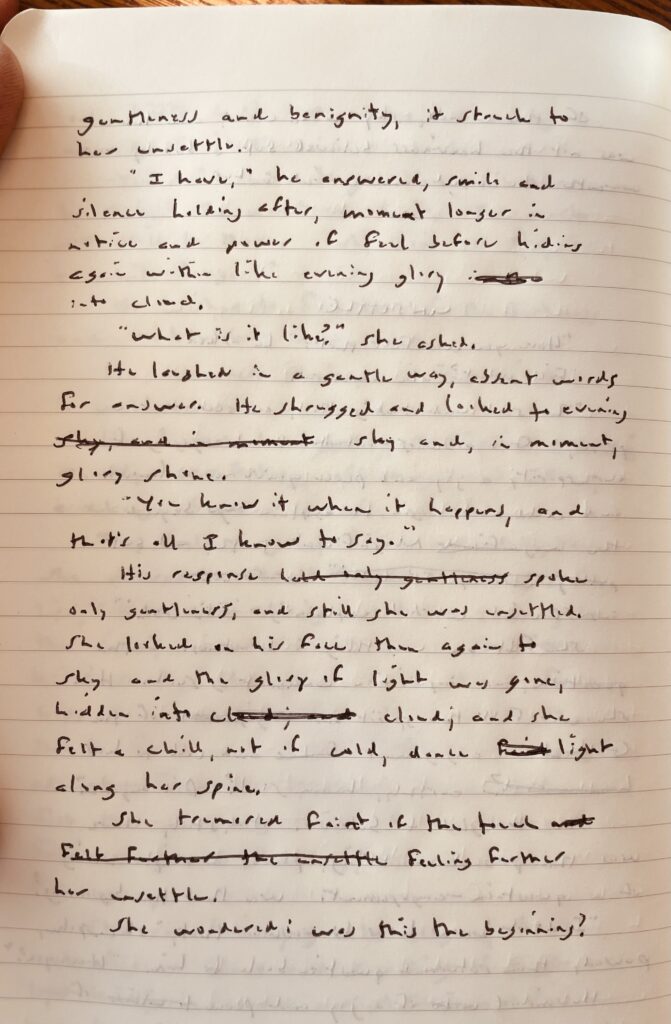 gentleness and benignity, it struck to
her unsettle.
"I have," he answered, smile and
silence holding after, moment longer in
notice and power of feel before hiding
again within like evening glory
into cloud.
"What is it like?" she asked.
He laughed in a gentle way, absent words
for answer. He shrugged and looked to evening
sky, and in moment sky and, in moment,
glory shone.
"You know it when it happens, and
that's all I know to say."
His response held only gentleness spoke
only gentleness, and still she was unsettled.
She looked on his face then again to
sky and the glory of light was gone,
hidden into cloud; and cloud; and she
felt a chill, not of cold, dance faint light
along her spine.
She tremored faint of the touch and
felt further the unsettle feeling further
her unsettle.
She wondered: was this the beginning?